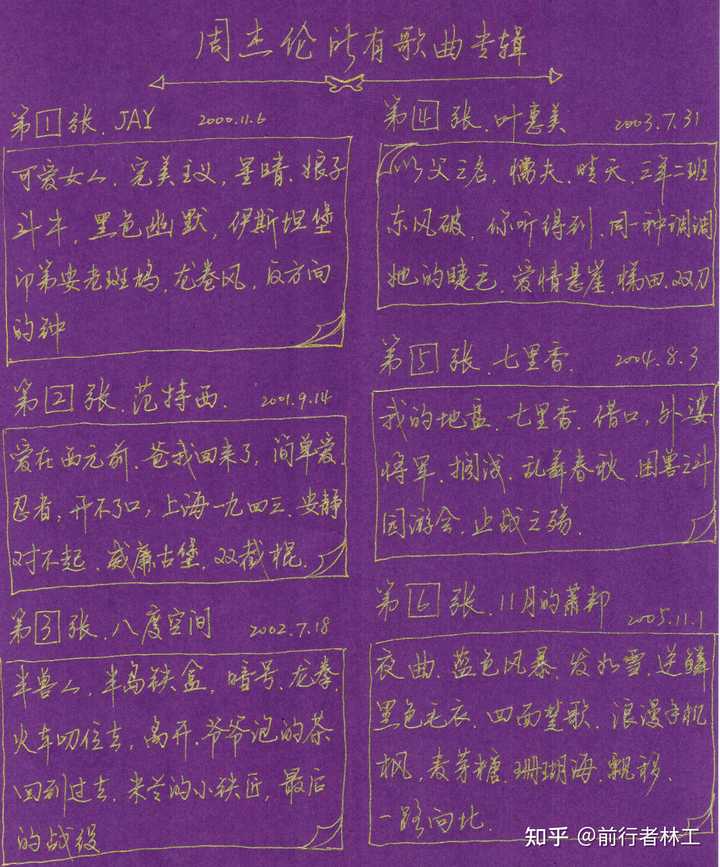 周杰伦所有歌曲专辑
第1张.JAY 2000.11.6
可爱女人.完美主义,星晴.娘子
斗牛,黑色幽默,伊斯坦堡
印第安老斑鸠,龙卷风,反方向
的钟
第2张.范特西. 2001.9.14
爱在西元前.爸我回来了,简单爱.
忍者,开不了口,上海一九四三.安静
对不起.威廉古堡.双截棍.
第3张.八度空间 2002.7.18
半兽人.半岛铁盒.暗号.龙拳.
火车叨位去,离开.爷爷泡的茶
回到过去.米兰的小铁匠,最后
的战役
第4张.叶惠美 2003.7.31
以父之名,懦夫.晴天.三年二班
东风破.你听得到.同一种调调
她的睫毛.爱情悬崖.梯田.双刀
第5张.七里香. 2004.8.3
我的地盘.七里香.借口,外婆
将军.搁浅.乱舞春秋.困兽之斗
园游会.止战之殇.
第6张.11月的萧邦 2005.11.1
夜曲.蓝色风暴.发如雪.逆鳞
黑色毛衣.四面楚歌.浪漫手机
枫,麦芽糖.珊瑚海.飘移.
一路向北.
知乎 @前行者林工